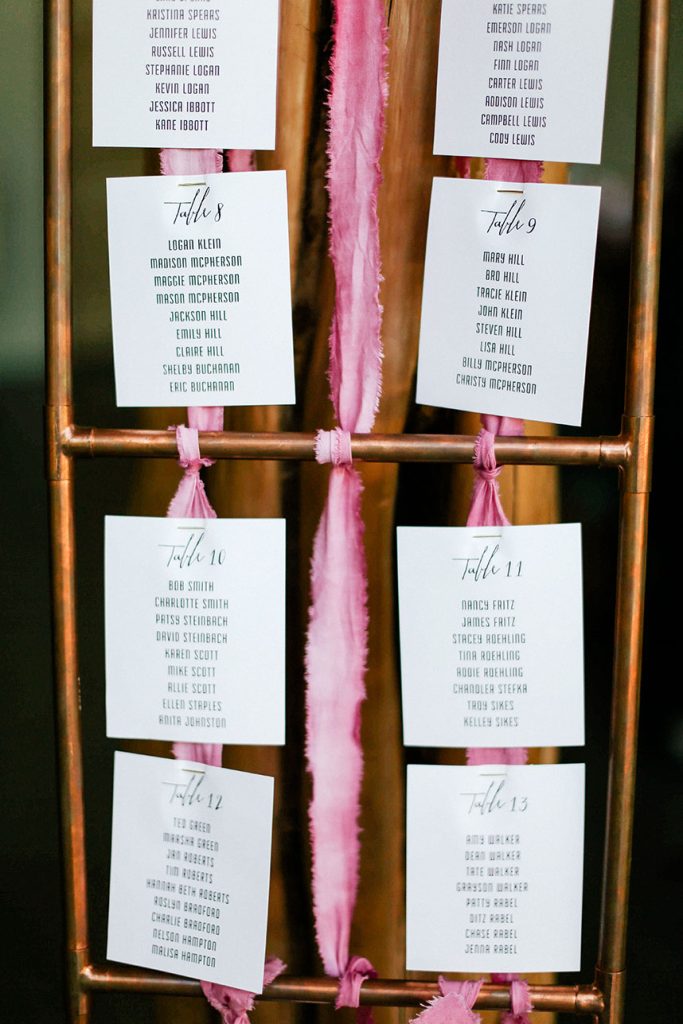 KRISTINA SPEARS
JENNIFER LEWIS
RUSSELL LEWIS
STEPHANIE LOGAN
KEVIN LOGAN
JESSICA IBBOTT
KANE IBBOTT
KATIE SPEARS
EMERSON LOGAN
NASH LOGAN
FINN LOGAN
CARTER LEWIS
ADDISON LEWIS
CAMPBELL LEWIS
CODY LEWIS
Table 8
LOGAN KLEIN
MADISON MCPHERSON
MAGGIE MCPHERSON
MASON MCPHERSON
JACKSON HILL
EMILY HILL
CLAIRE HILL
SHELBY BUCHANAN
ERIC BUCHANAN
Table 9
MARY HILL
BAO HILL
TRACIE KLEIN
JOHN KLEIN
STEVEN HILL
LISA HILL
BILLY MCPHERSON
CHRISTY MCPHERSON
Table 10
BOB SMITH
CHARLOTTE SMITH
PATSY STEINBACH
DAVID STEINBACH
KAREN SCOTT
MIKE SCOTT
ALLIE SCOTT
ELLEN STAPLES
ANITA JOHNSTON
Table 11
NANCY FRITZ
JAMES FRITZ
STACEY ROEHLING
TINA ROEHLING
ADDIE ROEHLING
CHANDLER STEFKA
TROY SIKES
KELLEY SIKES
Table 12
TED GREEN
MARSHA GREEN
JAN ROBERTS
TIM ROBERTS
HANNAH BETH ROBERTS
ROSLYN BRADFORD
CHARLIE BRADFORD
NELSON HAMPTON
MALISA HAMPTON
Table 13
AMY WALKER
DEAN WALKER
TATE WALKER
GRAYSON WALKER
PATTY RABEL
DITZ RABEL
CHASE RABEL
JENNA RABEL